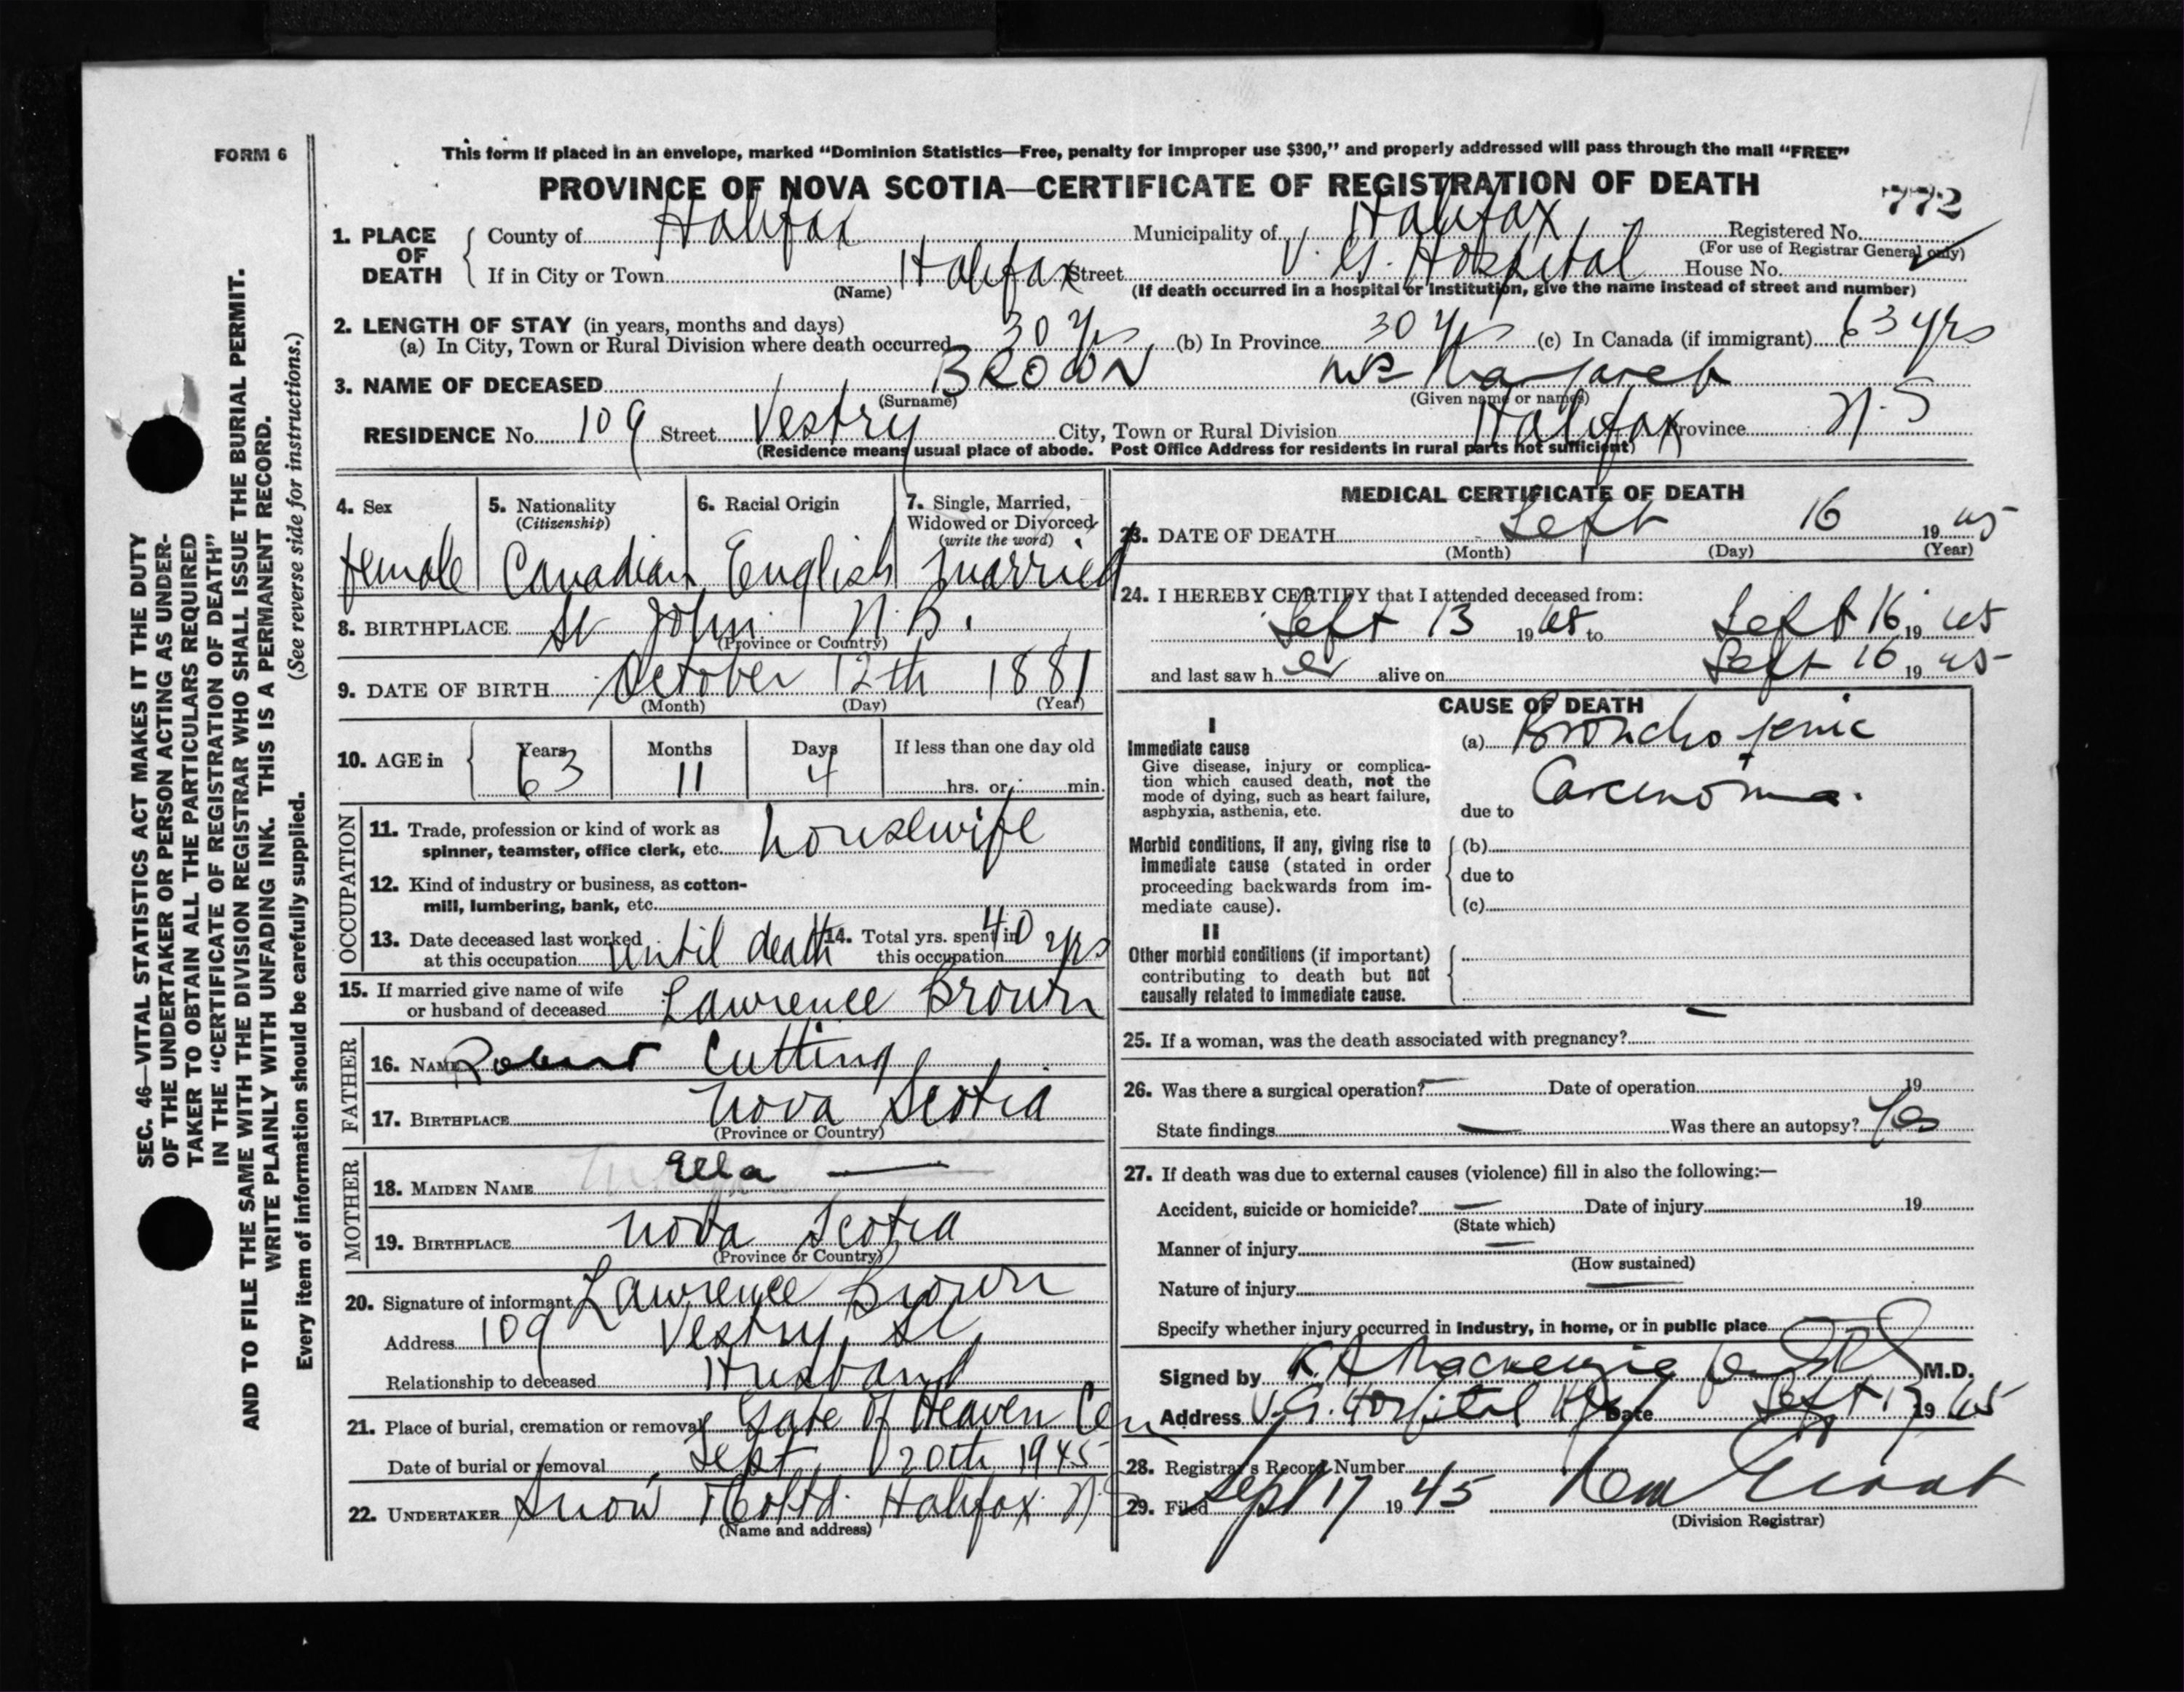 FORM 6
This form if placed in an envelope, marked “Dominion Statistics—Free, penalty for improper use $300,” and properly addressed will pass through the mail “FREE”
PROVINCE OF NOVA SCOTIA—CERTIFICATE OF REGISTRATION OF DEATH
772
1. PLACE OF DEATH
County of Halifax Municipality of Halifax Registered No.
(For use of Registrar General only)
If in City or Town Halifax Street V. G. Hospital House No.
(Name) (If death occurred in a hospital or institution, give the name instead of street and number)
2. LENGTH OF STAY (in years, months and days)
(a) In City, Town or Rural Division where death occurred 30 Yrs (b) In Province 30 Yrs (c) In Canada (if immigrant) 63 yrs
3. NAME OF DECEASED BROWN Mrs Margaret
(Surname) (Given name or names)
RESIDENCE No. 109 Street Vestry City, Town or Rural Division Halifax Province N.S
(Residence means usual place of abode. Post Office Address for residents in rural parts not sufficient)
4. Sex
female
5. Nationality
(Citizenship)
Canadian
6. Racial Origin
English
7. Single, Married,
Widowed or Divorced
(write the word)
married
8. BIRTHPLACE St John N.B.
(Province or Country)
9. DATE OF BIRTH October 12th 1881
(Month) (Day) (Year)
10. AGE in
Years Months Days If less than one day old
63 11 4 hrs. or min.
OCCUPATION
11. Trade, profession or kind of work as
spinner, teamster, office clerk, etc. housewife
12. Kind of industry or business, as cotton-
mill, lumbering, bank, etc.
13. Date deceased last worked
at this occupation until death
14. Total yrs. spent in
this occupation 40 yrs
15. If married give name of wife
or husband of deceased Lawrence Brown
FATHER
16. NAME Robert Cutting
17. BIRTHPLACE Nova Scotia
(Province or Country)
MOTHER
18. MAIDEN NAME Ella —
19. BIRTHPLACE Nova Scotia
(Province or Country)
20. Signature of informant Lawrence Brown
Address 109 Vestry St
Relationship to deceased Husband
21. Place of burial, cremation or removal Gate of Heaven Cem
Date of burial or removal Sept 20th 1945
22. UNDERTAKER Snow & Co Ltd. Halifax N.S
(Name and address)
MEDICAL CERTIFICATE OF DEATH
23. DATE OF DEATH Sept 16 19 45
(Month) (Day) (Year)
24. I HEREBY CERTIFY that I attended deceased from:
Sept 13 19 45 to Sept 16 19 45
and last saw h er alive on Sept 16 19 45
CAUSE OF DEATH
I
Immediate cause
Give disease, injury or complica-
tion which caused death, not the
mode of dying, such as heart failure,
asphyxia, asthenia, etc.
(a) Bronchogenic
due to Carcinoma.
Morbid conditions, if any, giving rise to
immediate cause (stated in order
proceeding backwards from im-
mediate cause).
(b)
due to
(c)
II
Other morbid conditions (if important)
contributing to death but not
causally related to immediate cause.
25. If a woman, was the death associated with pregnancy? —
26. Was there a surgical operation? — Date of operation 19
State findings — Was there an autopsy? Yes
27. If death was due to external causes (violence) fill in also the following:—
Accident, suicide or homicide? — Date of injury 19
(State which)
Manner of injury —
(How sustained)
Nature of injury —
Specify whether injury occurred in industry, in home, or in public place
Signed by K. A. Mackenzie M.D.
Address V. G. Hospital Hfx Date Sept 17 19 45
28. Registrar's Record Number
29. Filed Sept 17 19 45
(Division Registrar)
SEC. 46—VITAL STATISTICS ACT MAKES IT THE DUTY
OF THE UNDERTAKER OR PERSON ACTING AS UNDER-
TAKER TO OBTAIN ALL THE PARTICULARS REQUIRED
IN THE “CERTIFICATE OF REGISTRATION OF DEATH”
AND TO FILE THE SAME WITH THE DIVISION REGISTRAR WHO SHALL ISSUE THE BURIAL PERMIT.
WRITE PLAINLY WITH UNFADING INK. THIS IS A PERMANENT RECORD.
Every item of information should be carefully supplied. (See reverse side for instructions.)